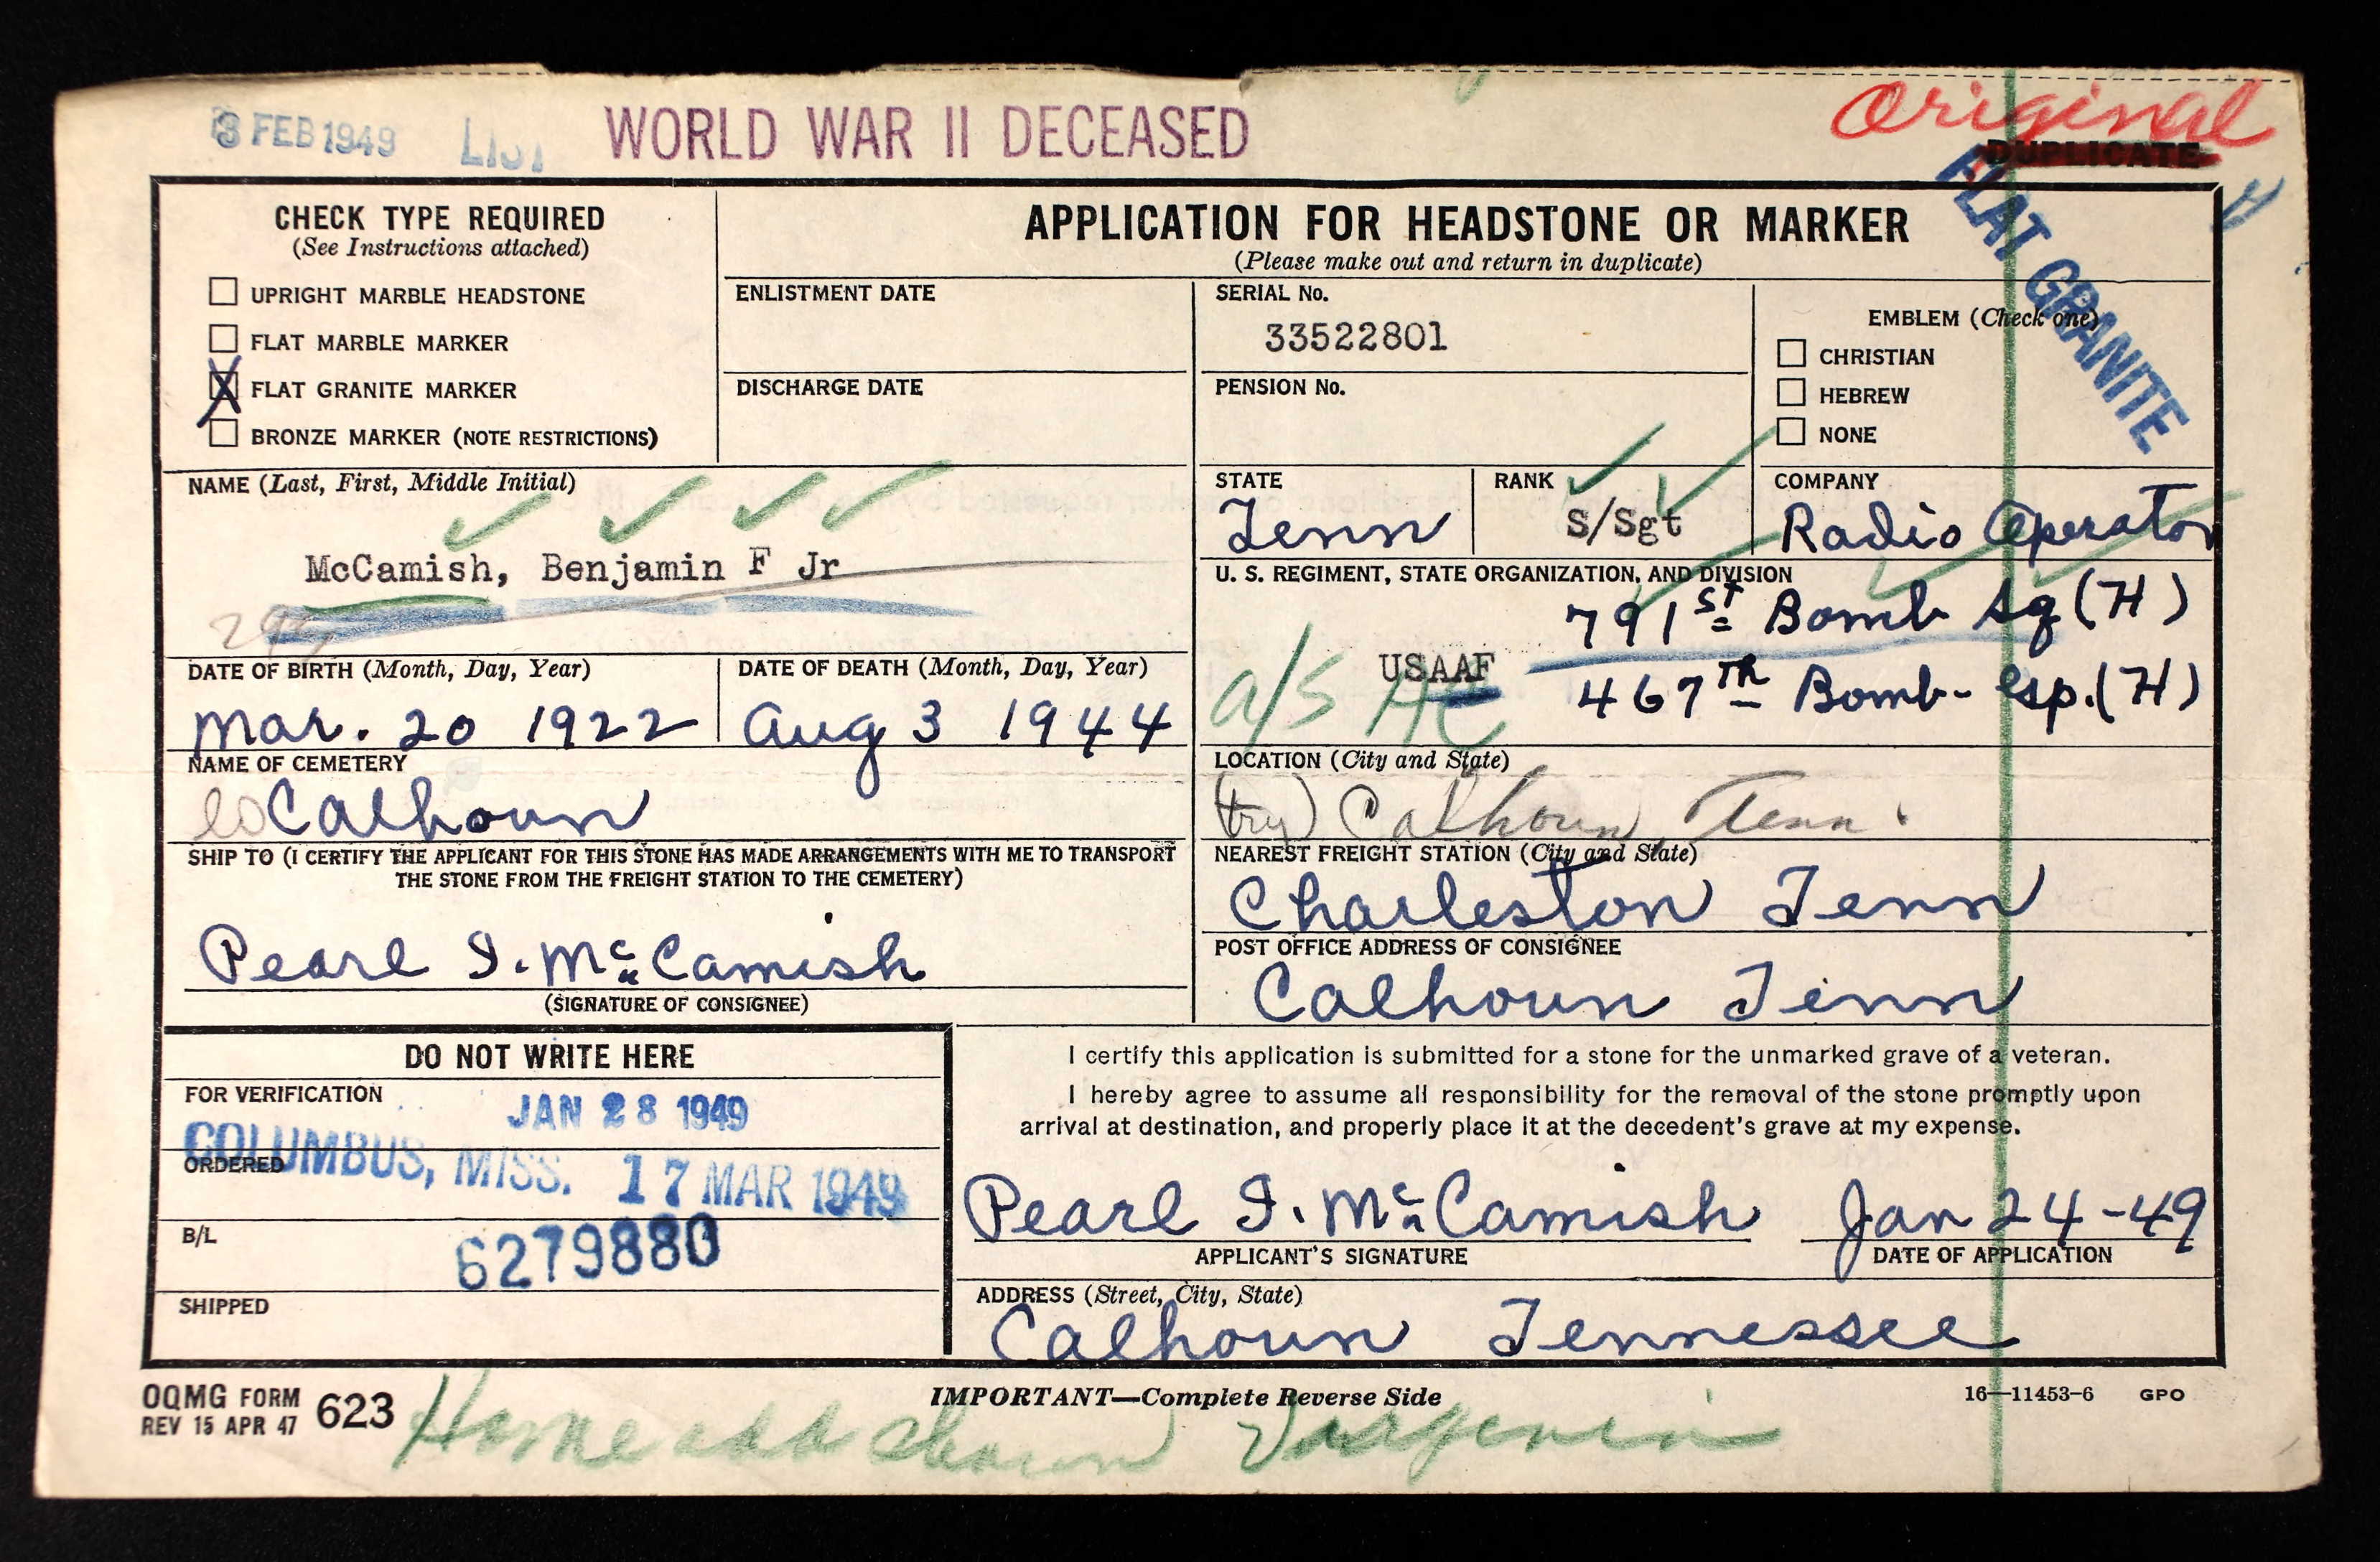 3 FEB 1949 LIST WORLD WAR II DECEASED
Original
DUPLICATE
FLAT GRANITE
CHECK TYPE REQUIRED
(See Instructions attached)
UPRIGHT MARBLE HEADSTONE
FLAT MARBLE MARKER
X FLAT GRANITE MARKER
BRONZE MARKER (NOTE RESTRICTIONS)
APPLICATION FOR HEADSTONE OR MARKER
(Please make out and return in duplicate)
ENLISTMENT DATE
DISCHARGE DATE
SERIAL No.
33522801
PENSION No.
EMBLEM (Check one)
CHRISTIAN
HEBREW
NONE
NAME (Last, First, Middle Initial)
McCamish, Benjamin F Jr
STATE
Tenn
RANK
S/Sgt
COMPANY
Radio Operator
U. S. REGIMENT, STATE ORGANIZATION, AND DIVISION
791st Bomb Sq (H)
USAAF
a/S AC
467TH Bomb- Gp. (H)
DATE OF BIRTH (Month, Day, Year)
Mar. 20 1922
DATE OF DEATH (Month, Day, Year)
Aug 3 1944
NAME OF CEMETERY
Calhoun
LOCATION (City and State)
(try) Calhoun, Tenn.
SHIP TO (I CERTIFY THE APPLICANT FOR THIS STONE HAS MADE ARRANGEMENTS WITH ME TO TRANSPORT
THE STONE FROM THE FREIGHT STATION TO THE CEMETERY)
Pearl I. McCamish
(SIGNATURE OF CONSIGNEE)
NEAREST FREIGHT STATION (City and State)
Charleston Tenn
POST OFFICE ADDRESS OF CONSIGNEE
Calhoun Tenn
DO NOT WRITE HERE
FOR VERIFICATION
JAN 28 1949
COLUMBUS, MISS.
ORDERED
17 MAR 1949
B/L
6279880
SHIPPED
I certify this application is submitted for a stone for the unmarked grave of a veteran.
I hereby agree to assume all responsibility for the removal of the stone promptly upon
arrival at destination, and properly place it at the decedent's grave at my expense.
Pearl I. McCamish Jan 24-49
APPLICANT'S SIGNATURE DATE OF APPLICATION
ADDRESS (Street, City, State)
Calhoun Tennessee
OQMG FORM 623
REV 15 APR 47
IMPORTANT—Complete Reverse Side
16—11453-6 GPO
Home add shown Virginia